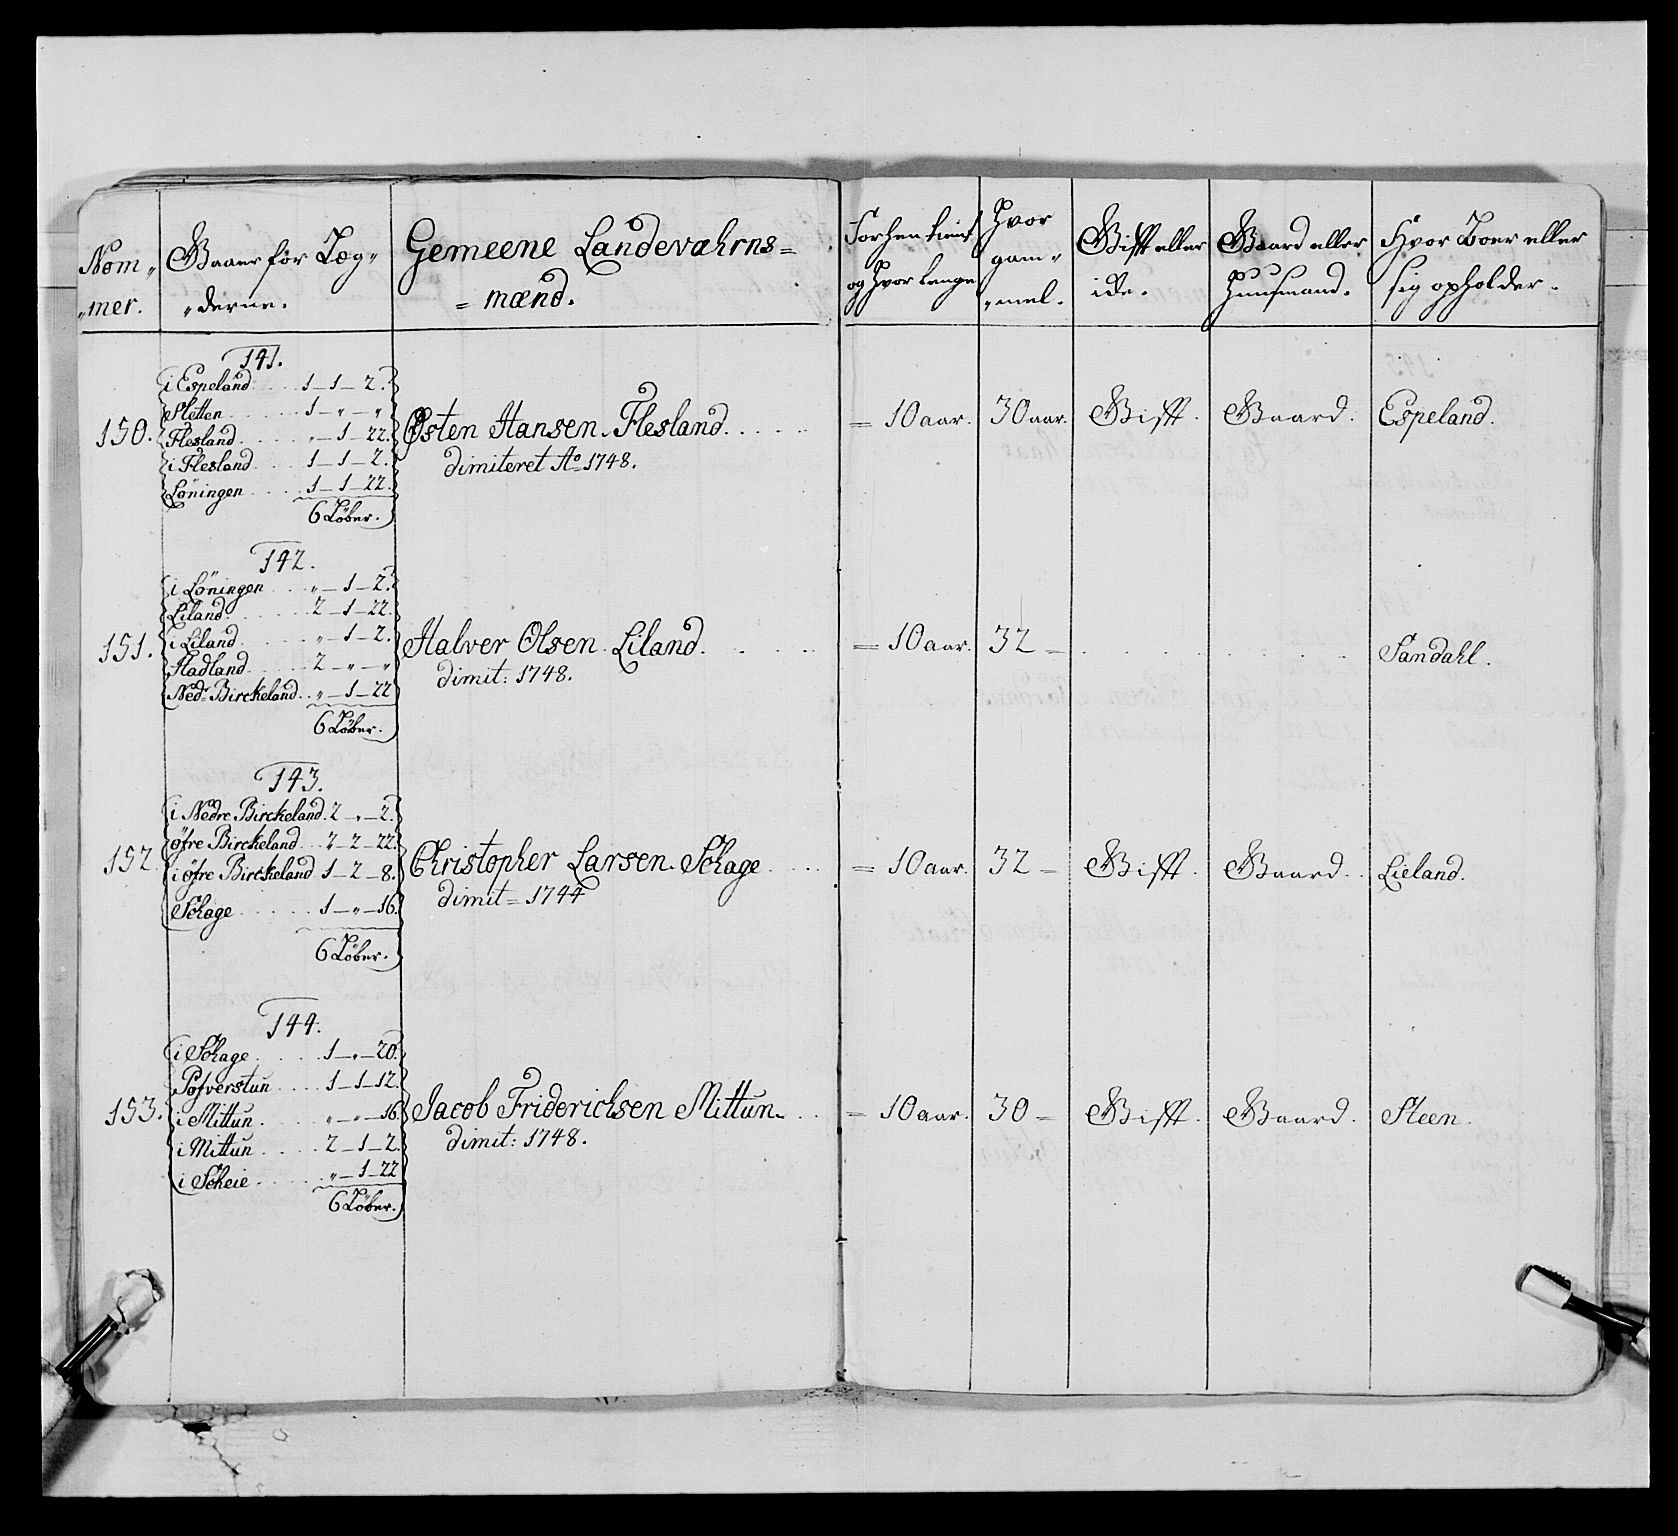 Nom„ „mer.
Gaaer för Læg„ „derne.
Gemeene Landevæhrns= = mænd.
Forhen tient og Hvor længe
Hvor gam„ „mel.
Gifft eller ide.
Gaard eller Huusmand.
Hvor Boer eller sig opholder.
141.
i Espeland 1 – 1 – 2.
Sletten 1 – „ – „
Flesland „ – 1 – 22.
i Flesland 1 – 1 – 2.
Löningen 1 – 1 – 22.
6 Löber.
150. Østen Hansen Flesland = 10 aar. 30 aar. Gifft. Gaard. Espeland.
dimiteret Ao 1748.
142.
i Löningen „ – 1 – 2.
Liland 2 – 1 – 22.
i Liland „ – 1 – 2.
Hadland 2 – „ – „
Ned: Birckeland „ – 1 – 22
6 Löber.
151. Halver Olsen Liland = 10 aar. 32 – Sandahl.
dimit: 1748.
143.
i Nedre Birckeland 2 – „ – 2.
öfre Birckeland 2 – 2 – 22.
i öfre Birckeland 1 – 2 – 8.
Schage 1 – „ – 16.
6 Löber.
152. Christopher Larsen Schage = 10 aar. 32 – Gifft. Gaard. Lieland.
dimit = 1744
144.
i Schage 1 – „ – 20.
Pofverstun 1 – 1 – 12.
i Mittun „ – „ – 16
i Mittun 2 – 1 – 2.
i Scheie „ – 1 – 22
6 Löber.
153. Jacob Friderichsen Mittun = 10 aar. 30 – Gifft. Gaard. Steen.
dimit: 1748.